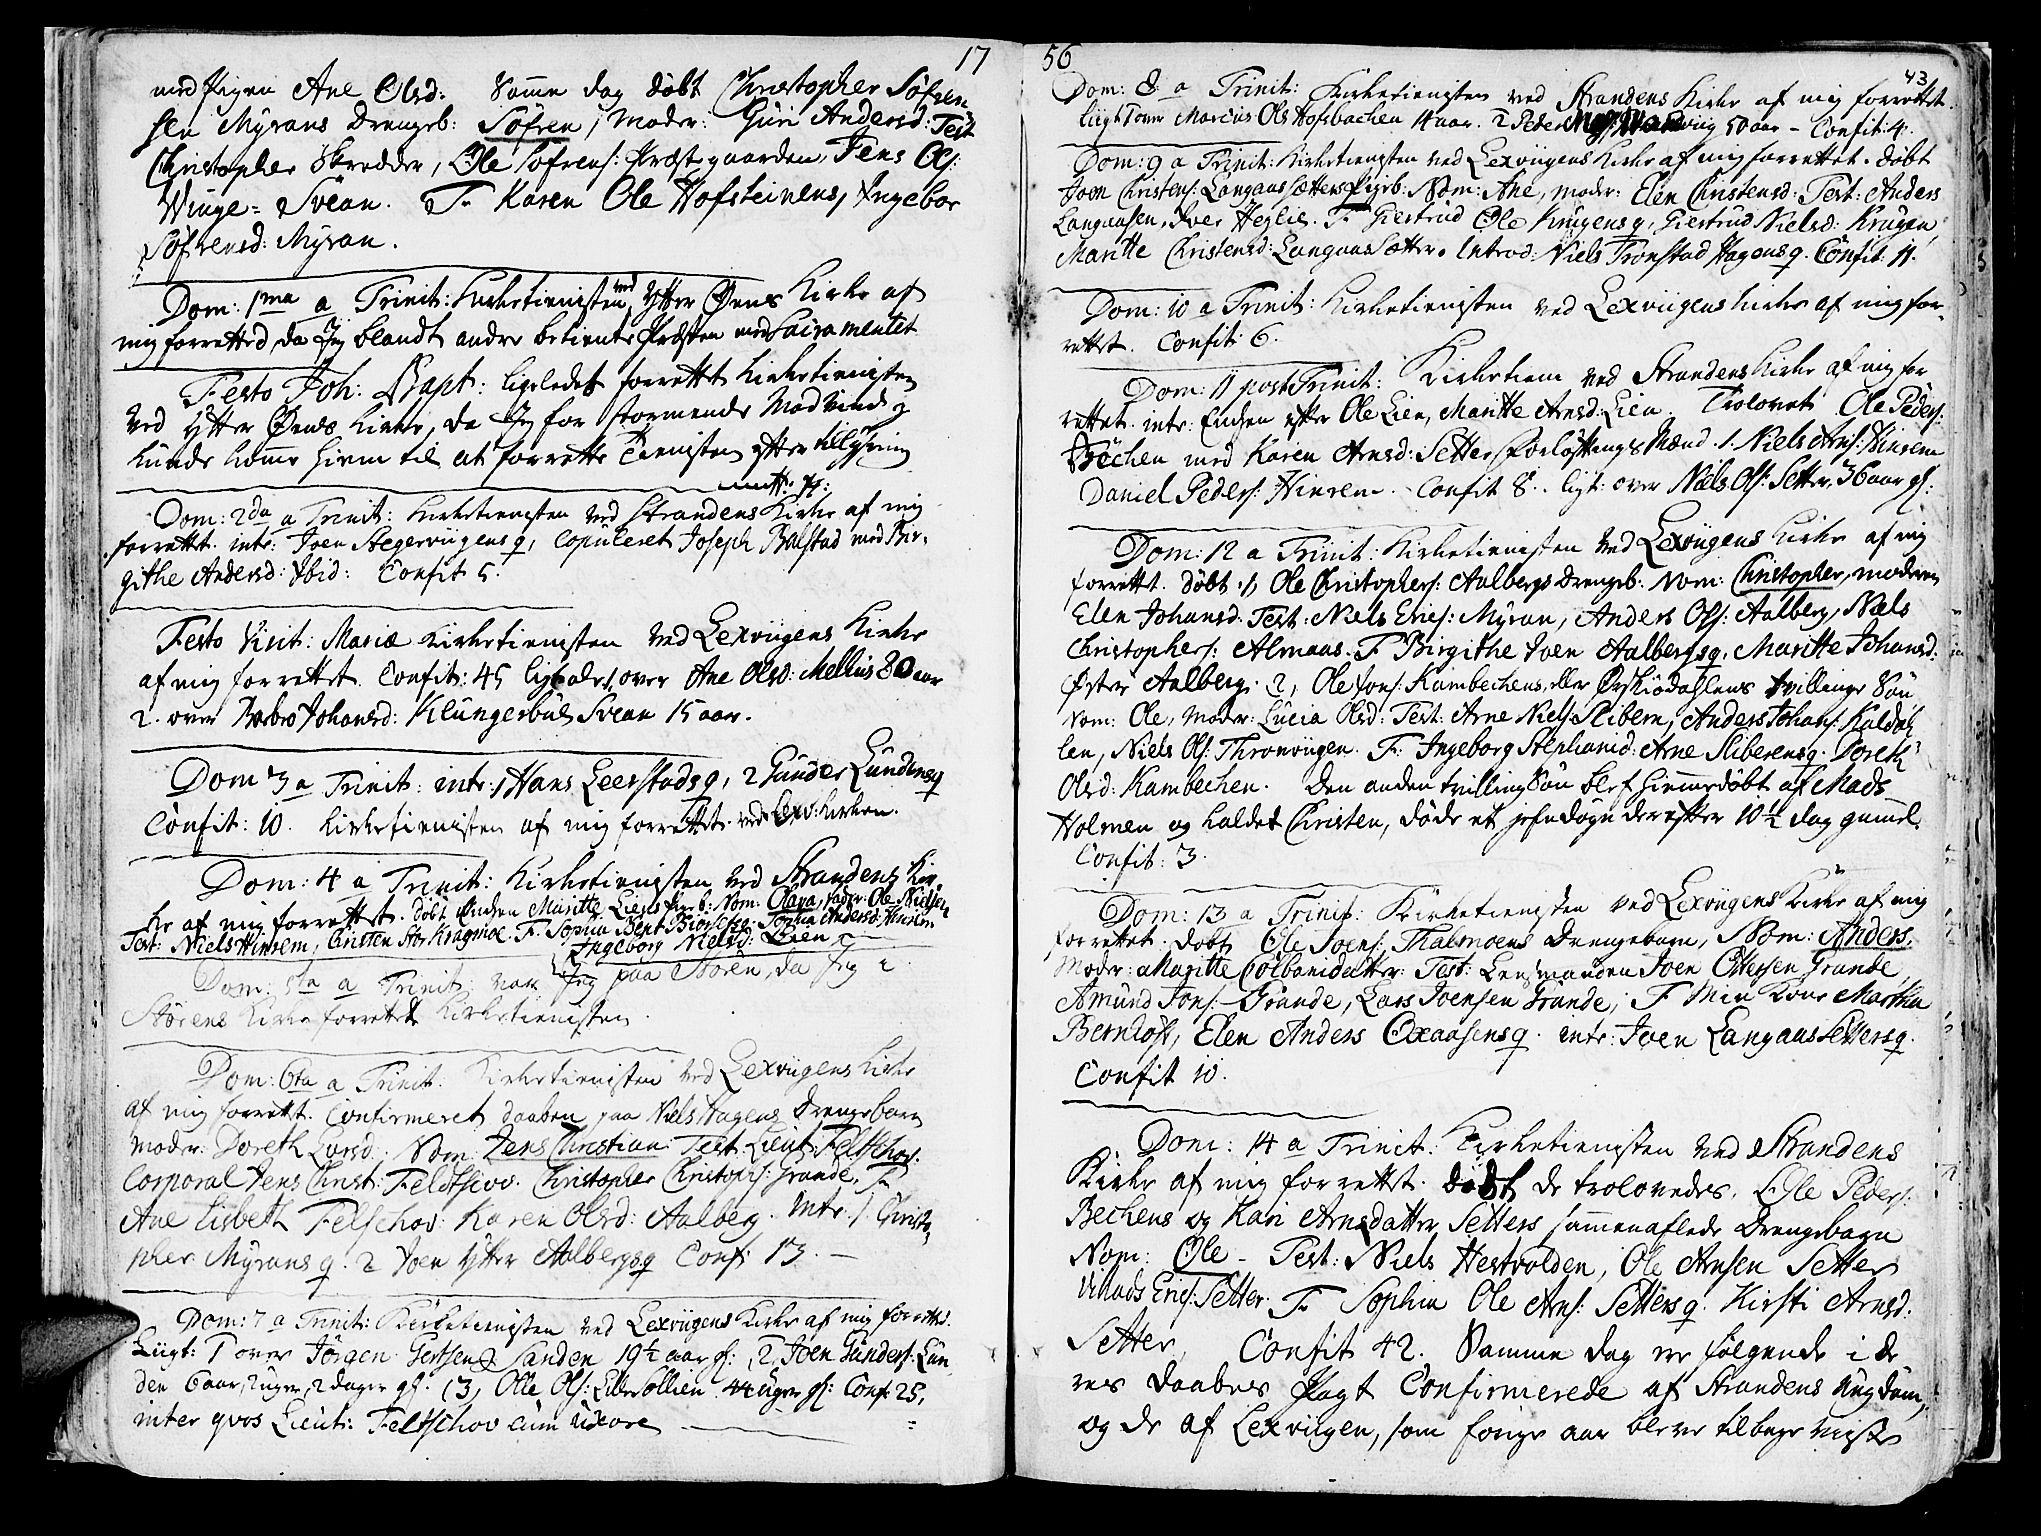 17
med Pigen Ane Olsd: Samme dag døbt Christopher Søfren
sen Myrans Drengeb: Søfren, Moder: Guri Andersd: Test
Christopher Skredder, Ole Søfrens: Præstgaarden, Jens Ols:
Winge-Svean. F. Karen Ole Hofsteinens, Ingebor
Søfrensd: Myran.
Dom: 1ma a Trinit: Kirketienisten ved Ytter Øens Kirke af
mig forretted, da Jeg blandt andre betiente Præsten med Sacramentet
Festo Joh: Bapt: ligeledes forrettet Kirketienisten
ved Ytter Øens Kirke, da Jeg for stormende Modvind ej
kunde komme hiem til at forrette Tienisten efter tillysning
Dom: 2da a Trinit: Kirketienisten ved Strandens Kirke af mig
forrettet. intr: Joen Hegerviigens q, Copuleret Joseph Balstad med Bir-
githe Andersd: Ibid: Confit 5.
Festo Visit: Mariæ Kirketienisten ved Lexviigens Kirke
af mig forrettet. Confit: 45 ligtalet over Ane Olsd: Mellius 80 aar
2. over Barbro Johansd: Klungerbuls Svean 15 aar.
Dom 3 a Trinit: intr: 1 Hans Leerstads q, 2 Gunder Lundens q
Confit: 10. Kirketienisten af mig forrettet ved Lexv: Kirken.
Dom: 4 a Trinit: Kirketienisten ved Strandens Kir
ke af mig forrettet. døbt Enken Maritte Liens Pigeb: Nom: Olava, fader: Ole Nielsen
Test: Niels Hinrem, Christen Stor Kragmoe. F. Sophia Bent Biørsets q, Sophia Andersd: Hinrem
Ingeborg Nielsd: Lien
Dom: 5ta a Trinit: var Jeg paa Støren, da Jeg i
Størens Kirke forrettede Kirketienisten.
Dom: 6ta a Trinit: Kirketienisten ved Lexviigens Kirke
af mig forrettet. Confirmeret daaben paa Niels Hagens Drengebarn
Moder: Doreth Larsd: Nom: Jens Christian: Test: Lieut: Feltschov.
Corporal Jens Christ: Feldtscov. Christopher Christophs: Grande, F.
Ane Lisbeth Feltschov: Karen Olsd: Aalberg. Intr: 1. Christo
pher Myrans q. 2 Joen Ytter Aalbergs q Conf: 13.
Dom: 7 a Trinit: Kirketienisten ved Lexviigens Kirke af mig forrettet.
Liigt: 1 over Jørgen Gertsen Sanden 19½ aar gl:, 2, Joen Gunders: Lun
den 6 aar, 2 uger, 2 dager gl. (3, Olle Ols: Liberollien uger gl: Conf: 25,
inter qvos Lieut: Feltschov cum uxore
56
43
Dom: 8 a Trinit: Kirketienisten ved Strandens Kirke af mig forrettet.
liigt 1 over Marcus Ols Hofsbachen 4 aar. 2 Peder viig 50 aar – Confit: 4.
Dom: 9 a Trinit: Kirketienisten ved Lexviigens Kirke af mig forrettet. døbt
Joen Christens: Langaas Sætters Pigeb: Nom: Ane, moder: Elen Christensd: Test: Anders
Langaasen, Iver Heglie. F. Giertrud Ole Krugens q, Giertrud Nielsd: Krugen,
Maritte Christensd: Langaas Sætter. Introd: Niels Tronstad Hagens q. Confit: 11.
Dom: 10 a Trinit: Kirketienisten ved Lexviigens Kirke af mig for-
rettet. Confit: 6.
Dom: 11 post Trinit: Kirketien ved Strandens Kirke af mig for
rettet. intr: Enken efter Ole Lien, Maritte Arnsd: Lien. Trolovet Ole Peders:
Bechen med Karen Arnsd: Setter, forløftnings Mænd. 1. Niels Arns: Hinrem
Daniel Peders: Hinrem. Confit 8. ligt: over Niels Ols: Setter, 36 aar gl:
Dom: 12 a Trinit: Kirketienisten ved Lexviigens Kirke af mig
forrettet. døbt: 1, Ole Christophers: Aalbergs Drengeb: Nom: Christopher, moderen
Elen Johansd: Test: Niels Erics: Myran, Anders Ols: Aalberg, Niels
Christophers: Almaas. F. Birgithe Joen Aalbergs q, Maritte Johansd:
Øster Aalberg. 2, Ole Jons: Kambechens, eller Ørskiødahlens tvillinge Søn
Nom: Ole, Moder: Lucia Olsd: Test: Arne Niels: Sliberen, Anders Johans: Kaldah
len, Niels Ols: Thronviigen. F. Ingeborg Stephanid: Arne Sliberens q. Doreth
Olsd: Kambechen. Den anden tvilling Søn blef hiemmedøbt af Mads
Holmen og kaldet Christen, døde et jefndøgn derefter 10½ dag gammel.
Confit: 3.
Dom: 13 a Trinit: Kirketienisten ved Lexviigens Kirke af mig
forrettet. døbt Ole Joens: Thalmoens Drengebarn, Nom: Anders,
Moder: Maritte Colbanidatter: Test: Lensmanden Joen Ottersen Grande,
Amund Jons: Grande, Lars Joensen Grande; F. Min Kone Martha
Berndoft, Elen Anders Oxaasens q. intr: Joen Langaas Setters q.
Confit 10.
Dom: 14 a Trinit: Kirketienisten ved Strandens
Kirke af mig forrettet. døbt de trolovedes, Ole Peders:
Bechens og Kari Arnsdatter Setters sammenaflede Drengebarn
Nom: Ole – Test: Niels Hestvolden, Ole Arnsen Setter
Vinads Erics: Setter. F. Sophia Ole Arns: Setters q. Kirsti Arnsd:
Setter, Confit 42. Samme dag ere følgende i de
res Daabes Pagt Confirmerede af Strandens Ungdom,
og de af Lexviigen, som forige aar bleve tilbage viiste